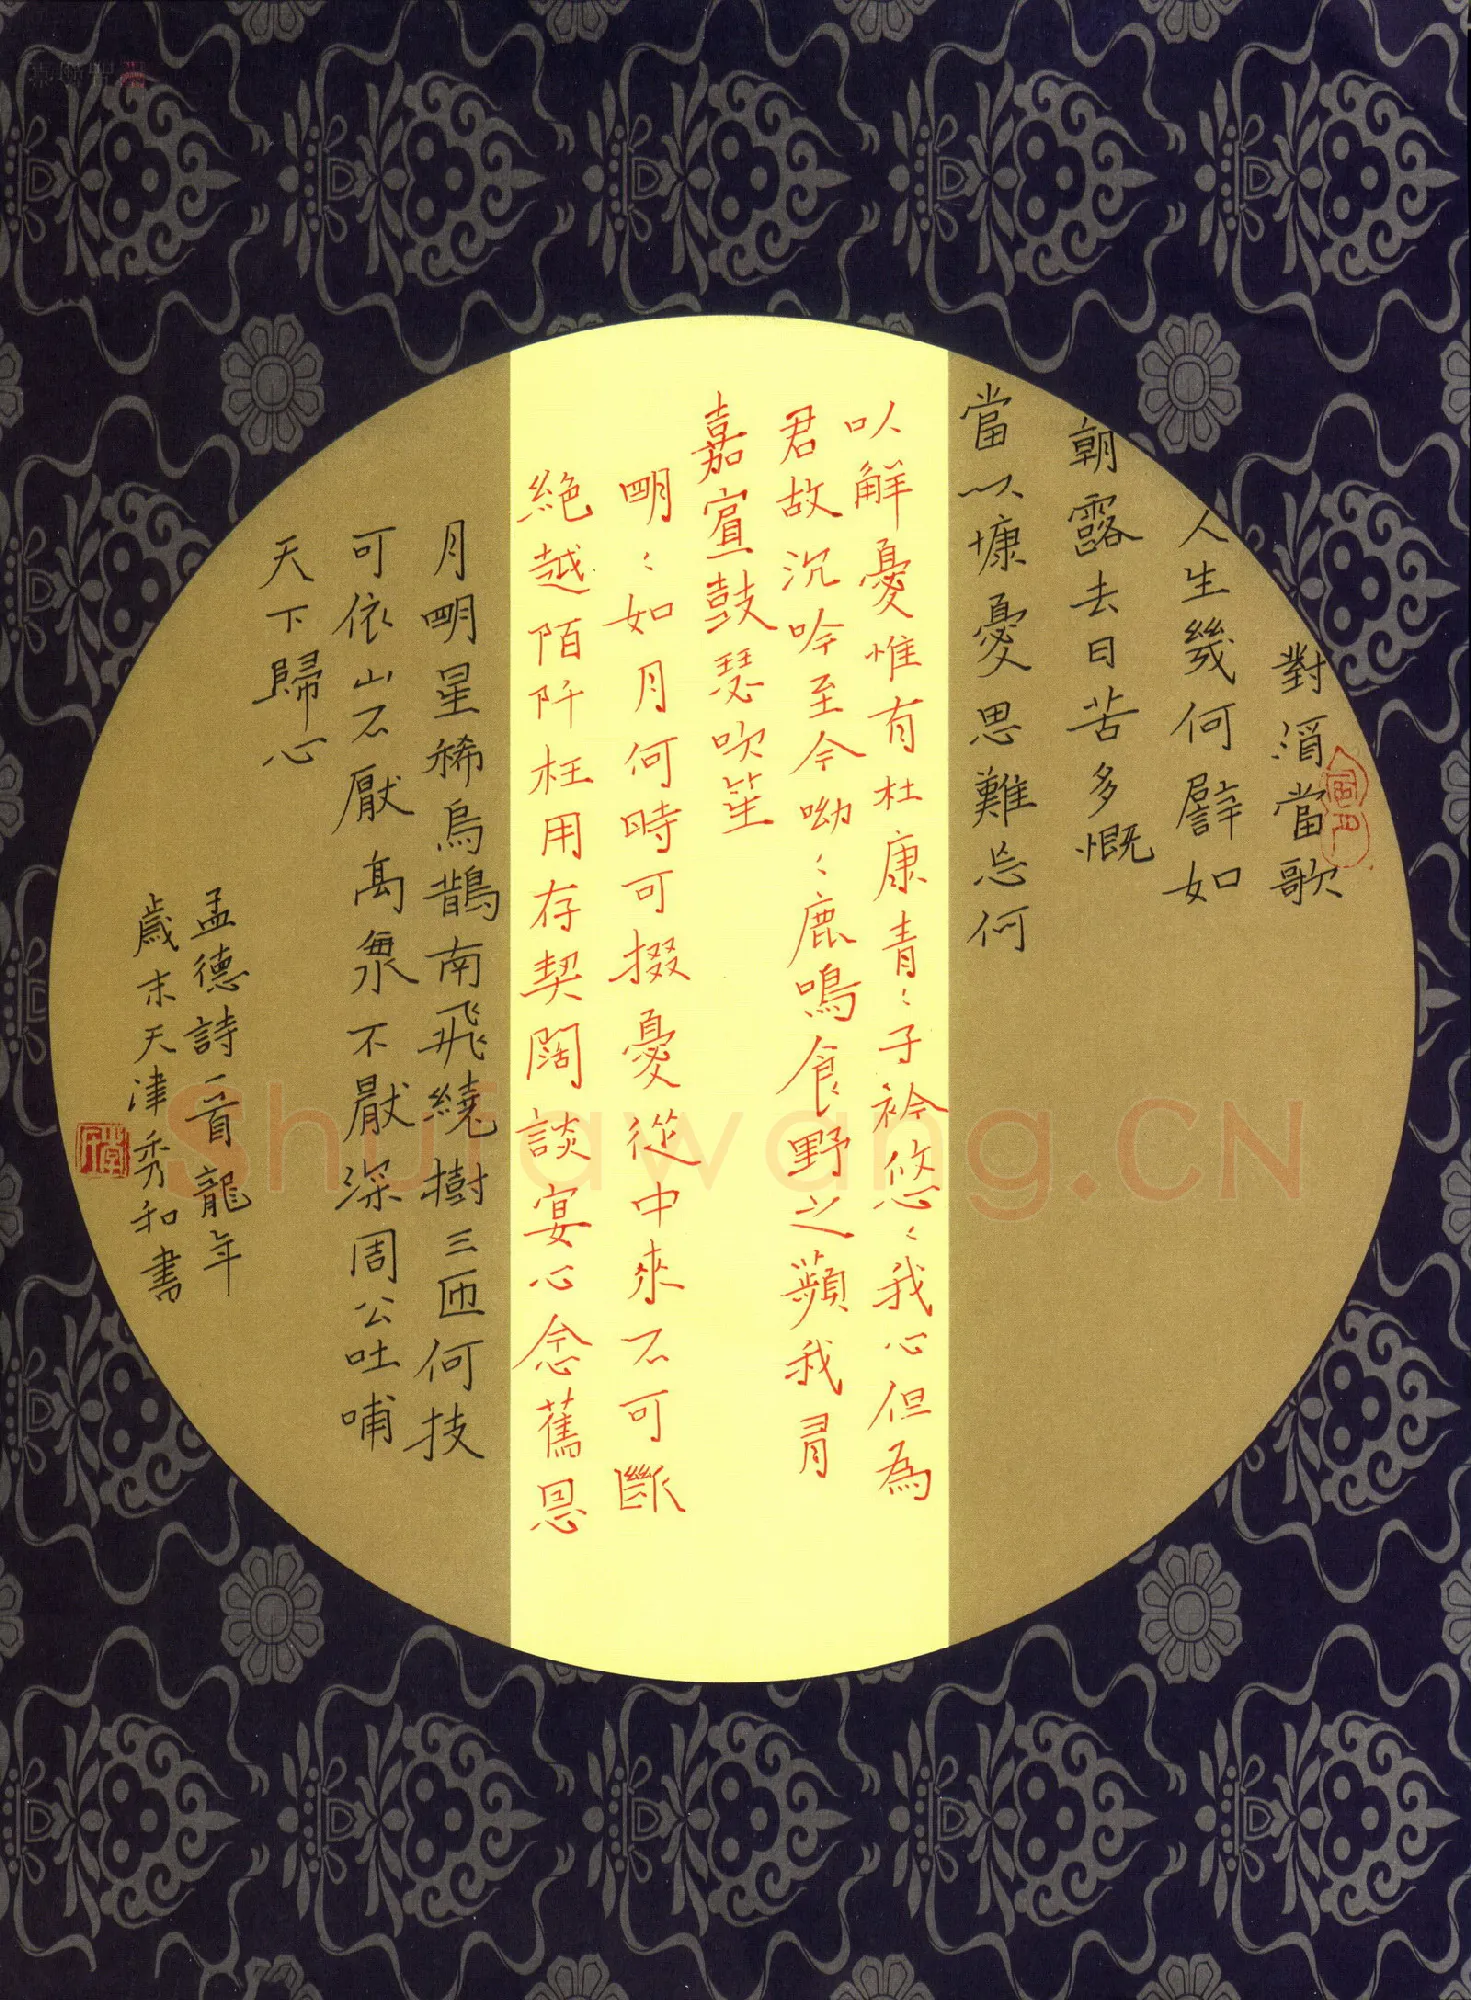 對酒當歌
人生幾何譬如
朝露去日苦多慨
當以慷憂思難忘何
以解憂惟有杜康青﹕子衿悠﹕我心但為
君故沉吟至今呦﹕鹿鳴食野之蘋我有
嘉賓鼓瑟吹笙
明﹕如月何時可掇憂從中來不可斷
絕越陌阡枉用存契闊談宴心念舊恩
月明星稀烏鵲南飛繞樹三匝何技
可依山不厭高衆不厭深周公吐哺
天下歸心
孟德詩一首龍年
歲末天津秀和書
Shufawang.CN